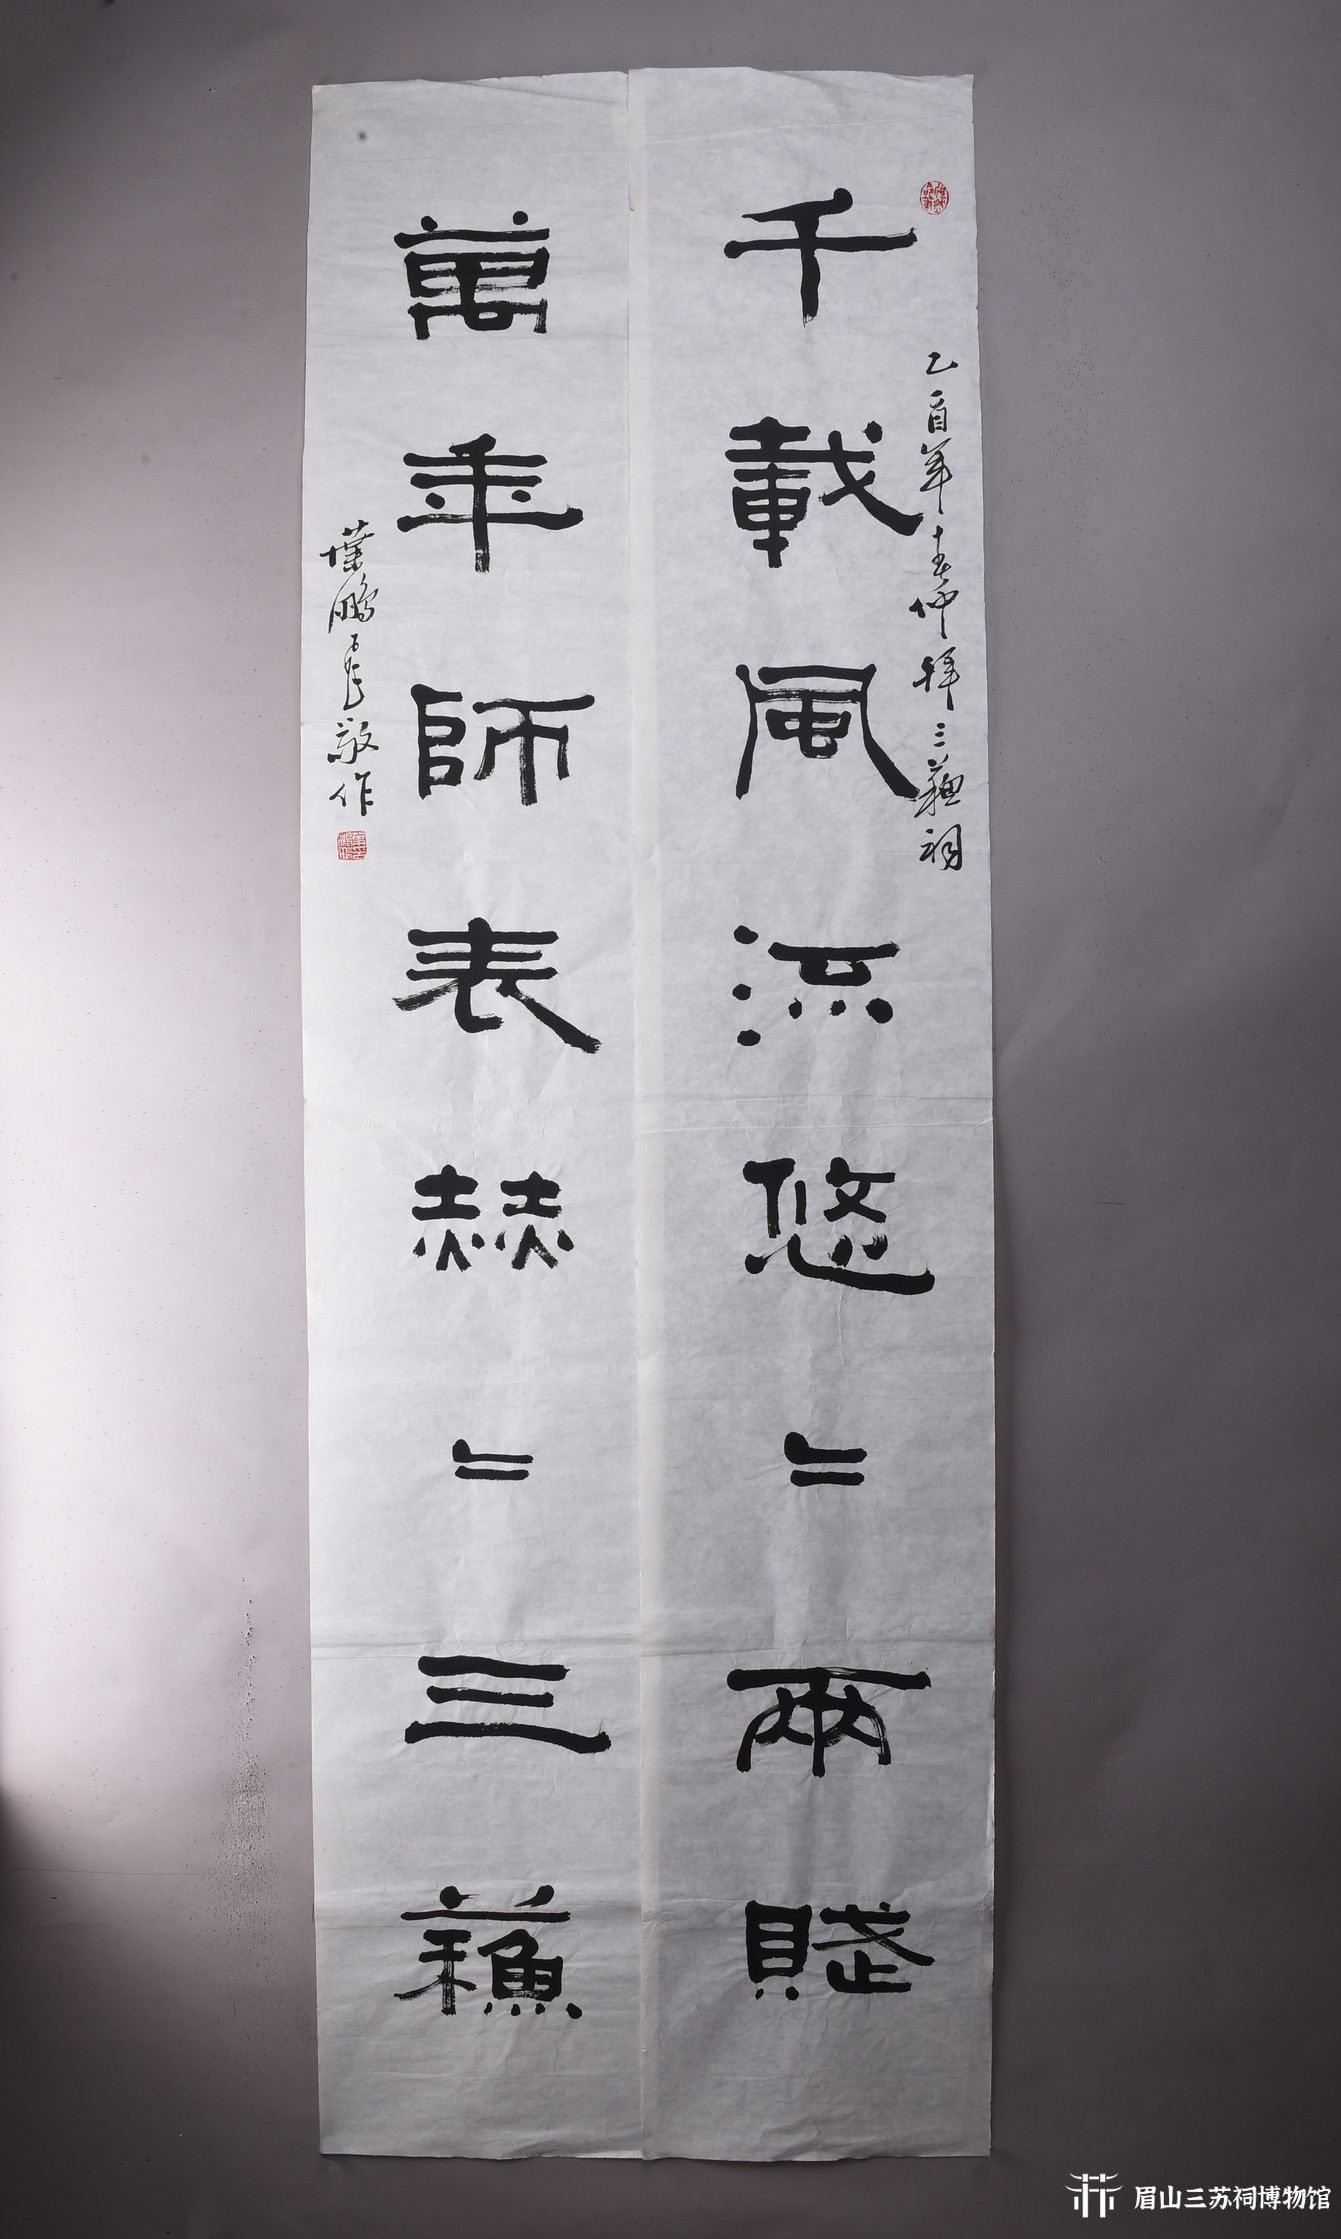 千載風流悠〻兩賦
乙酉年春仲拜三蘇祠
萬年師表赫〻三蘇
葉鵬飛敬作
眉山三苏祠博物馆